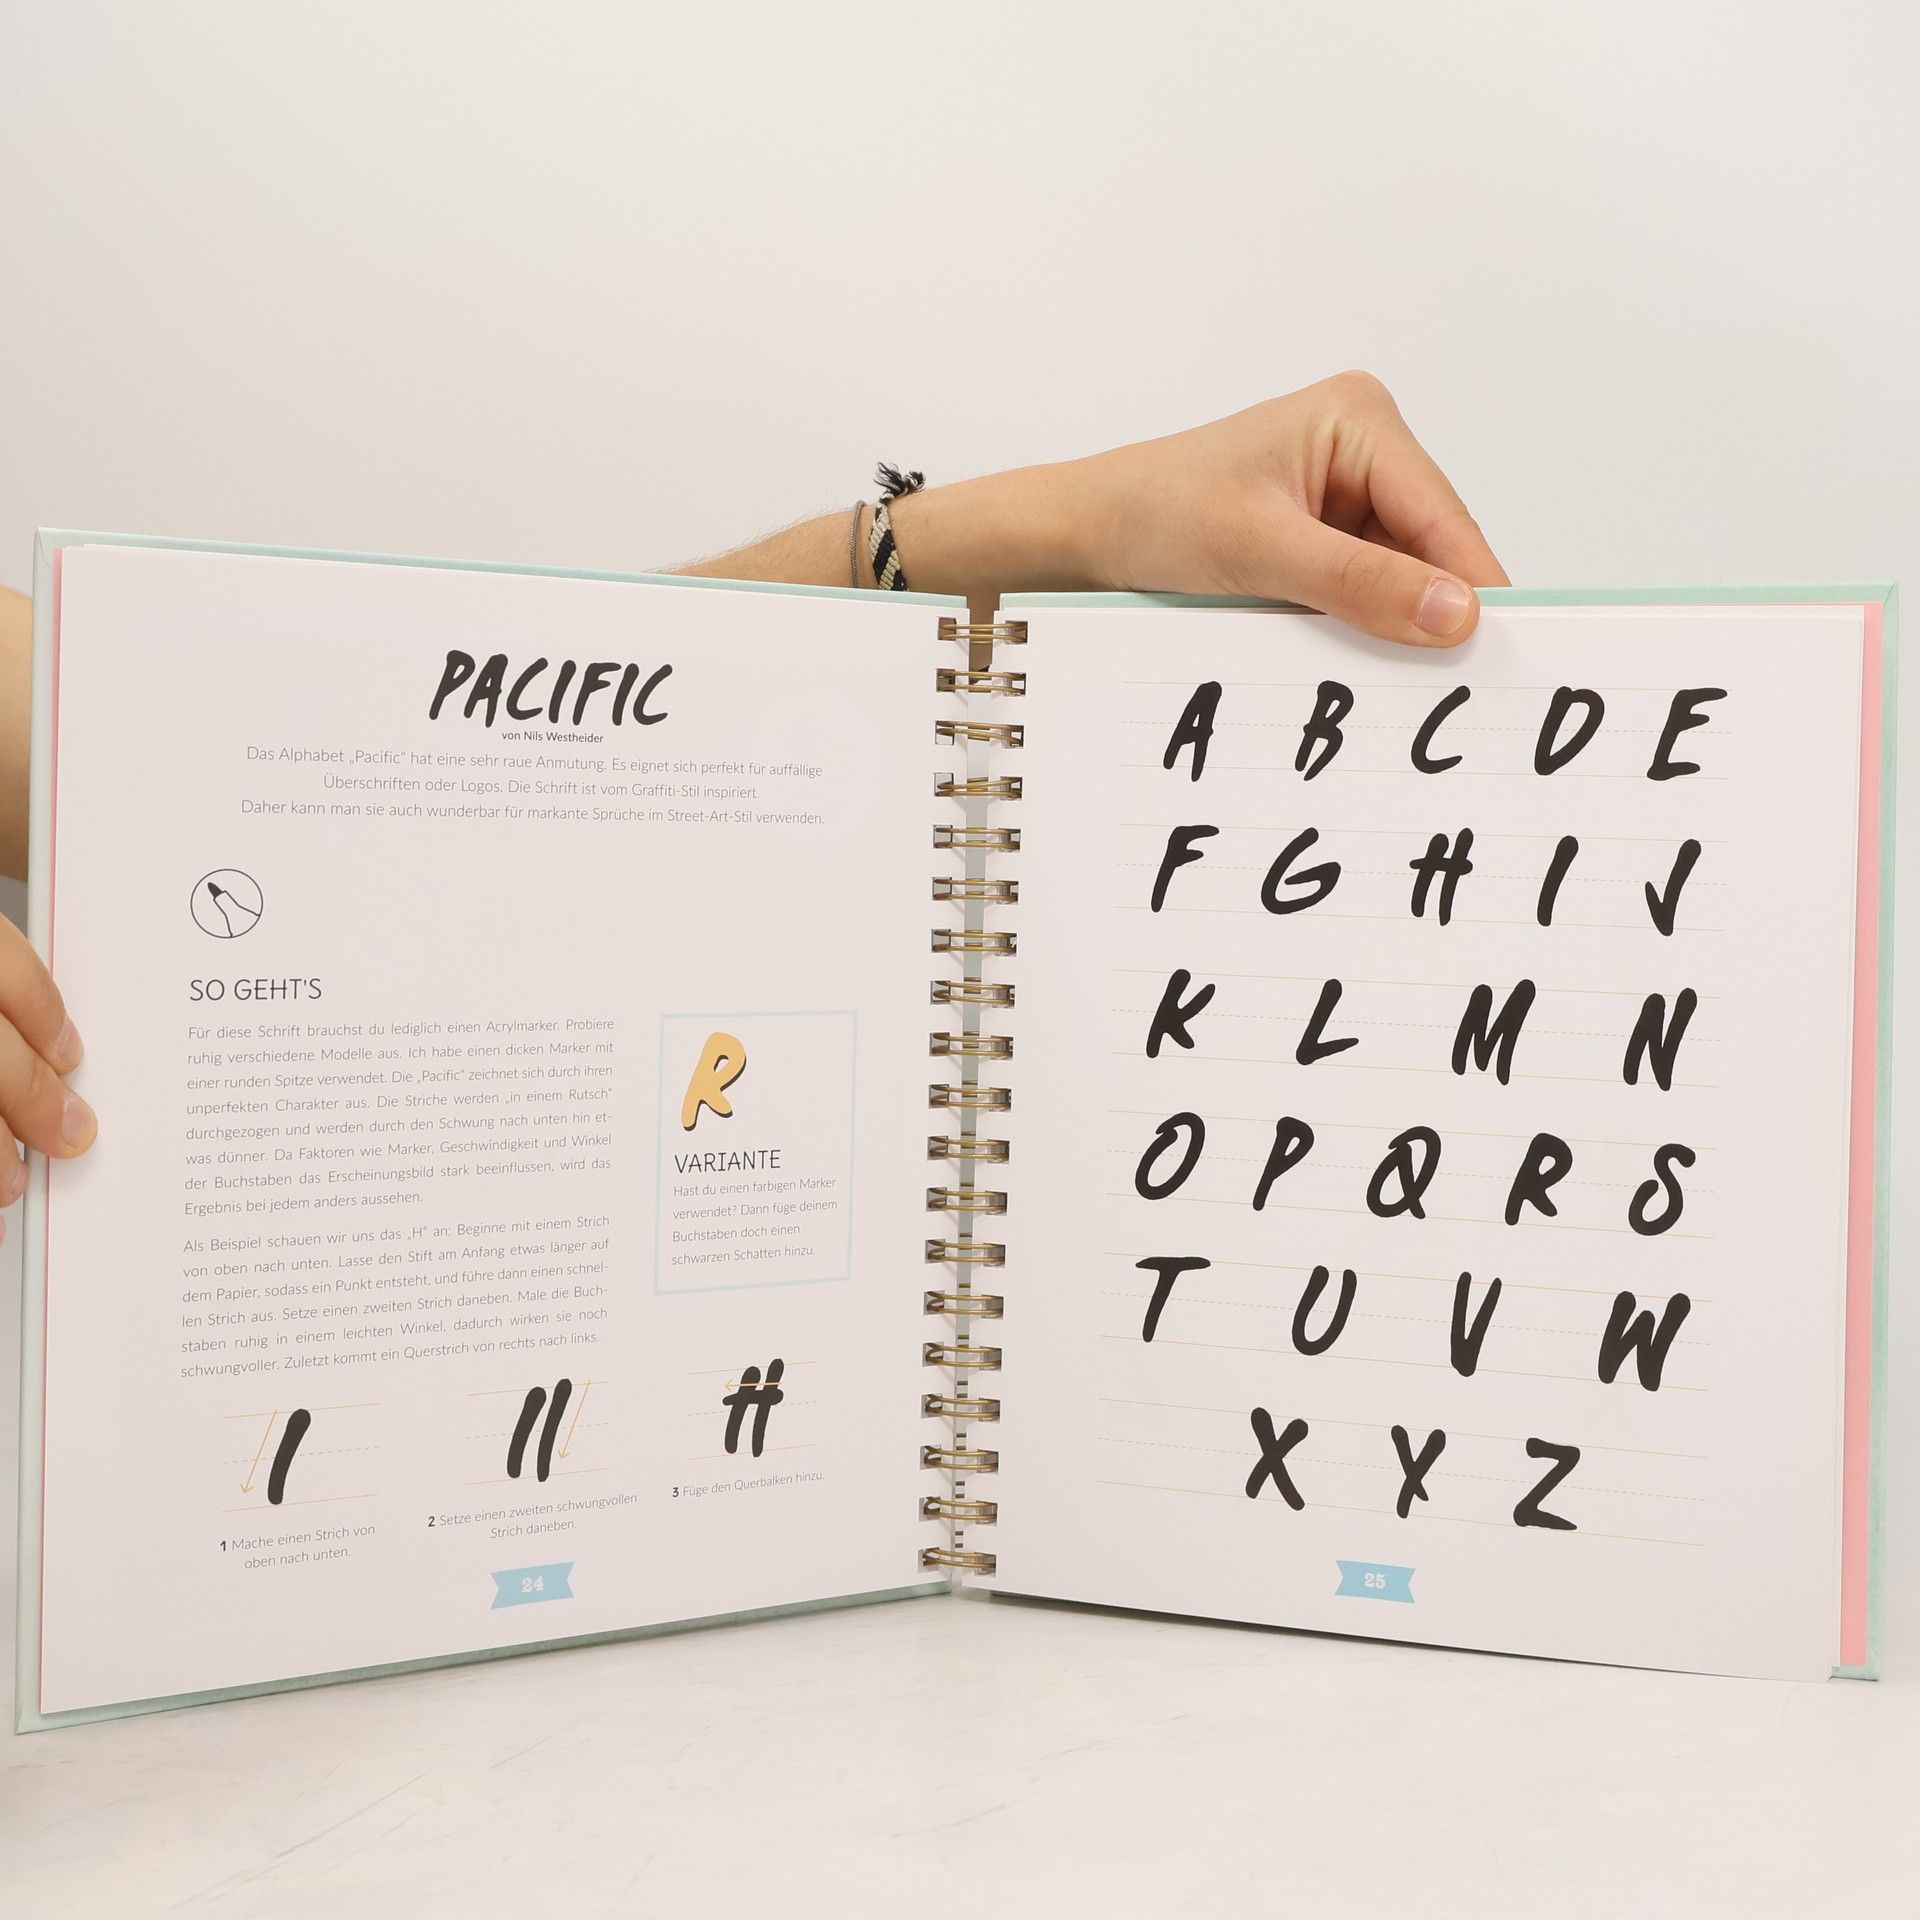 PACIFIC
von Nils Westheider
Das Alphabet „Pacific“ hat eine sehr raue Anmutung. Es eignet sich perfekt für auffällige
Überschriften oder Logos. Die Schrift ist vom Graffiti-Stil inspiriert.
Daher kann man sie auch wunderbar für markante Sprüche im Street-Art-Stil verwenden.
SO GEHT'S
Für diese Schrift brauchst du lediglich einen Acrylmarker. Probiere
ruhig verschiedene Modelle aus. Ich habe einen dicken Marker mit
einer runden Spitze verwendet. Die „Pacific“ zeichnet sich durch ihren
unperfekten Charakter aus. Die Striche werden „in einem Rutsch“
durchgezogen und werden durch den Schwung nach unten hin et-
was dünner. Da Faktoren wie Marker, Geschwindigkeit und Winkel
der Buchstaben das Erscheinungsbild stark beeinflussen, wird das
Ergebnis bei jedem anders aussehen.
Als Beispiel schauen wir uns das „H“ an: Beginne mit einem Strich
von oben nach unten. Lasse den Stift am Anfang etwas länger auf
dem Papier, sodass ein Punkt entsteht, und führe dann einen schnel-
len Strich aus. Setze einen zweiten Strich daneben. Male die Buch-
staben ruhig in einem leichten Winkel, dadurch wirken sie noch
schwungvoller. Zuletzt kommt ein Querstrich von rechts nach links.
R
VARIANTE
Hast du einen farbigen Marker
verwendet? Dann füge deinem
Buchstaben doch einen
schwarzen Schatten hinzu.
H
1 Mache einen Strich von
oben nach unten.
2 Setze einen zweiten schwungvollen
Strich daneben.
3 Füge den Querbalken hinzu.
24
A B C D E
F G H I J
K L M N
O P Q R S
T U V W
X Y Z
25